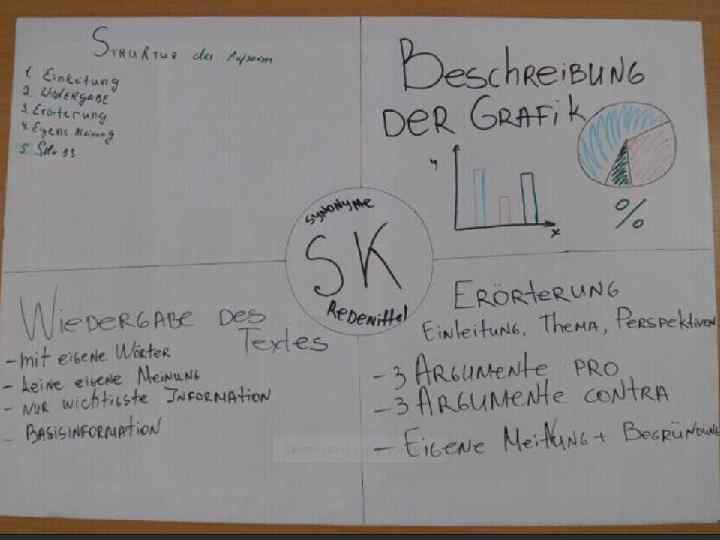 Struktur des
1. Einleitung
2. Wiedergabe
3. Erörterung
4. Eigene Meinung
5.
Beschreibung
der Grafik
y
x
%
Synonyme
SK
Redemittel
Wiedergabe des
Textes
- mit eigene Wörter
- keine eigene Meinung
- nur wichtigste Information
- Basisinformation
Erörterung
Einleitung, Thema, Perspektiven
- 3 Argumente pro
- 3 Argumente contra
- Eigene Meinung + Begründung